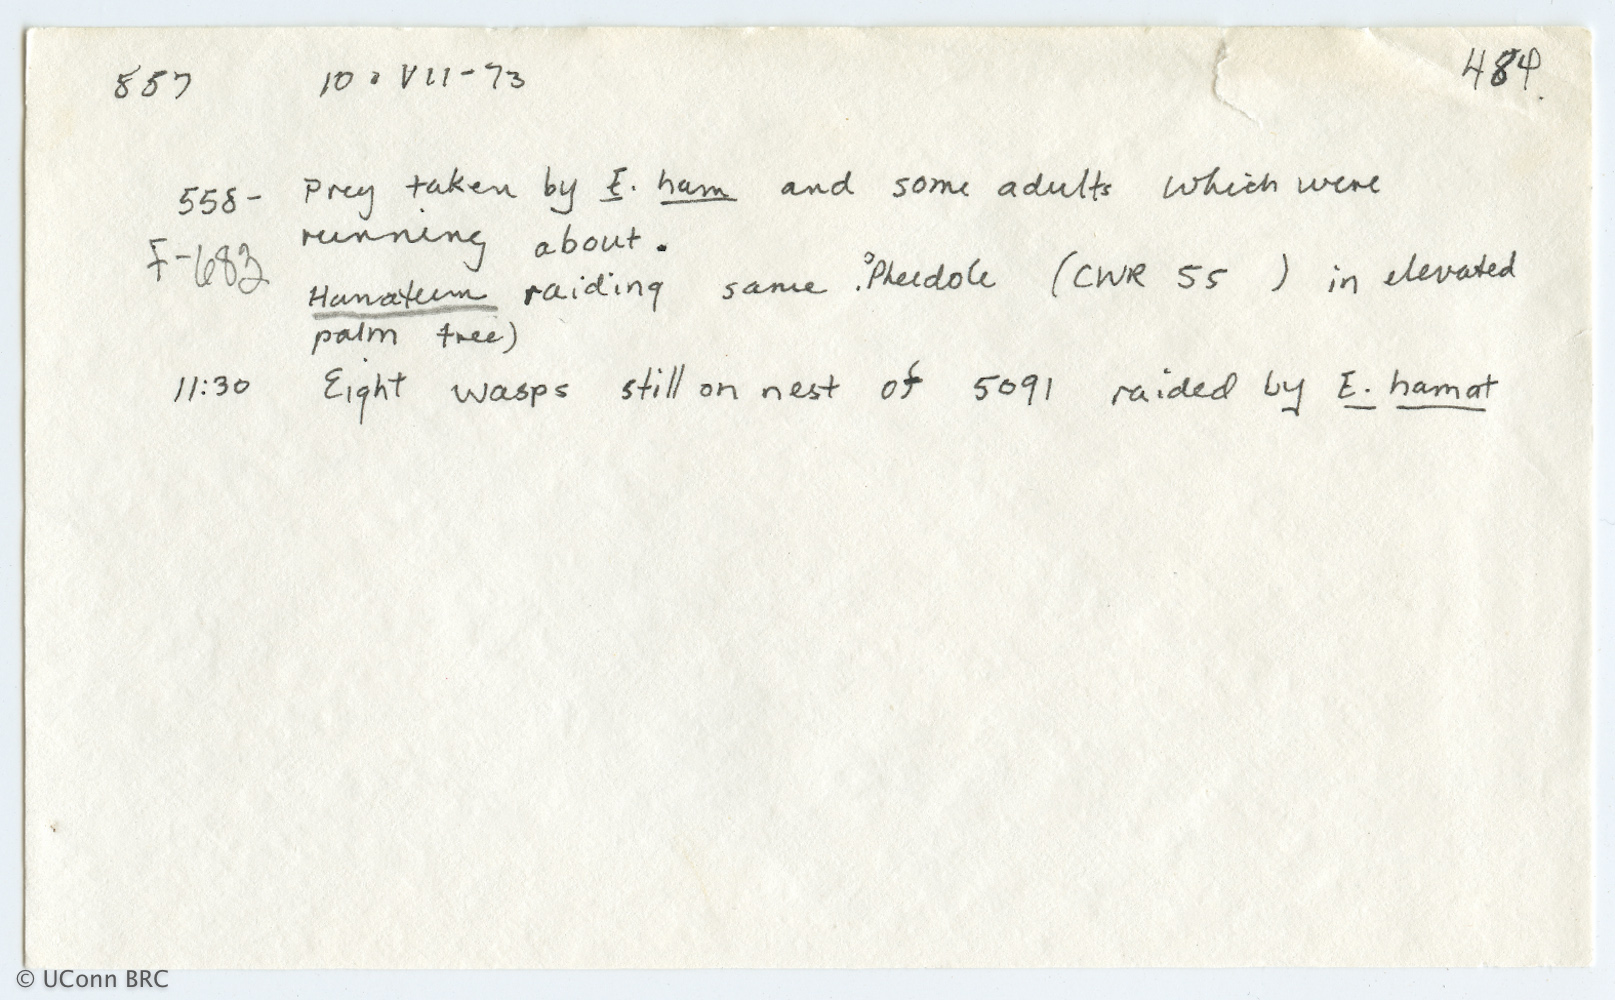 557 10 • VII-73 484.
558- Prey taken by E. ham and some adults which were
F-682 running about.
Hamatum raiding same Pheidole (CWR 55 ) in elevated
palm tree)
11:30 Eight wasps still on nest of 5091 raided by E. hamat
© UConn BRC